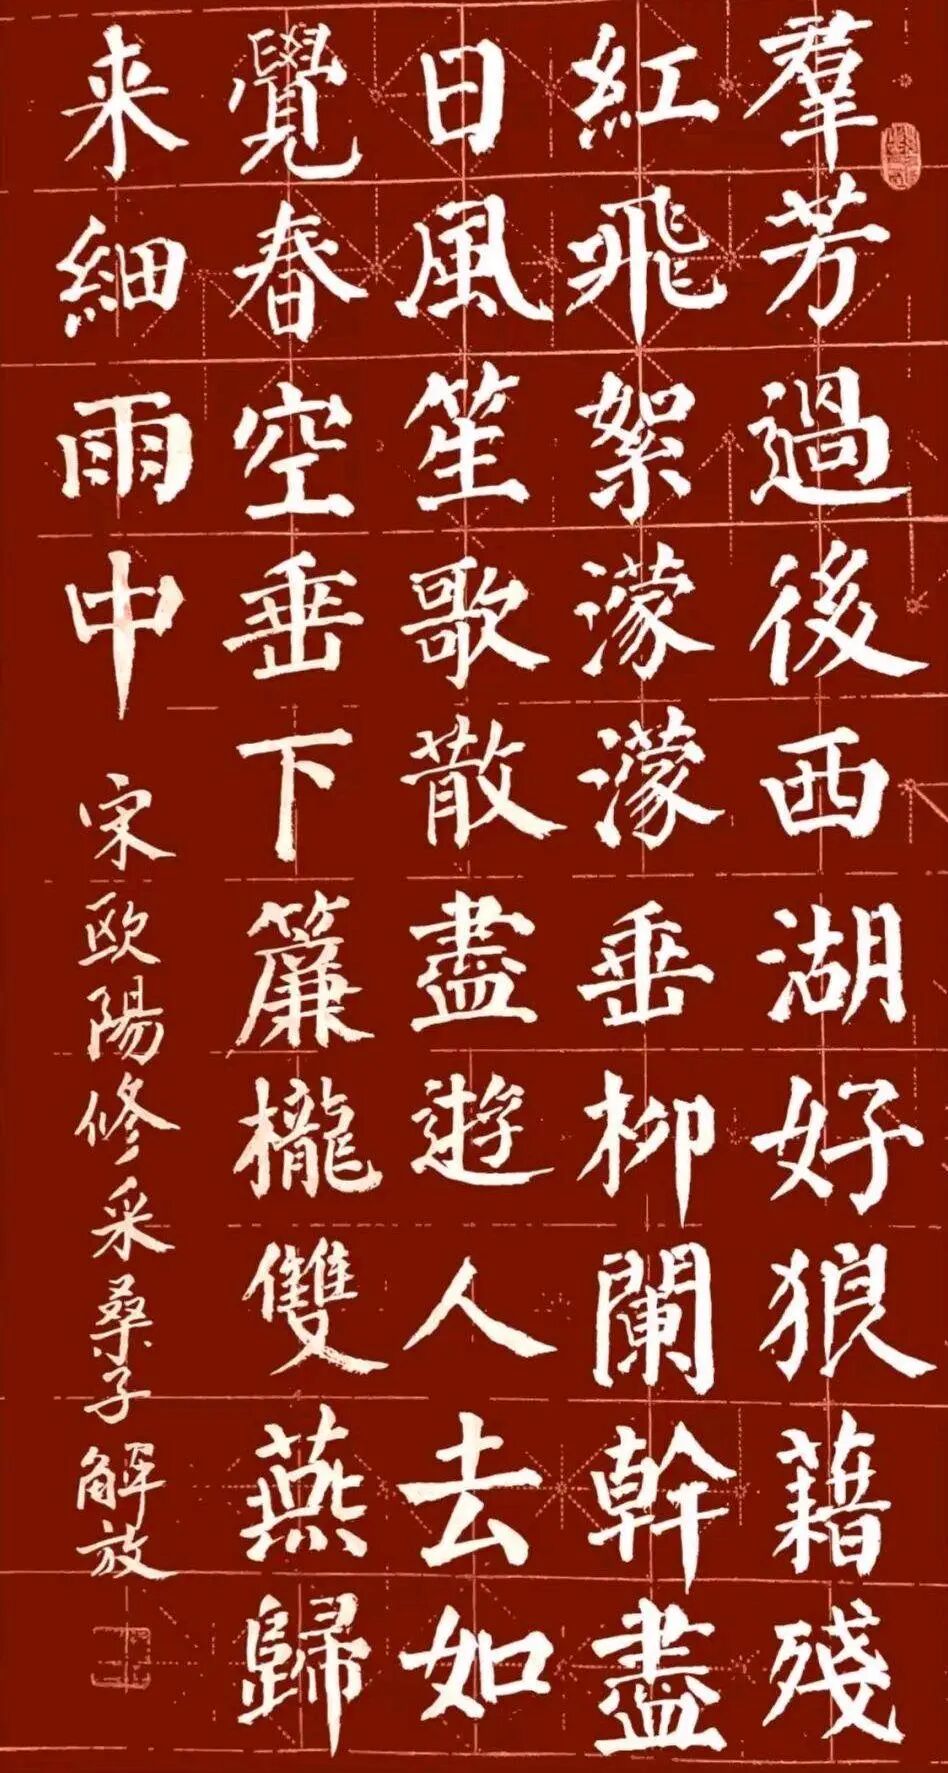 羣芳過後西湖好狼藉殘
紅飛絮濛濛垂柳闌幹盡
日風笙歌散盡遊人去如
覺春空垂下簾櫳雙燕歸
来細雨中 宋欧陽修采桑子 解放